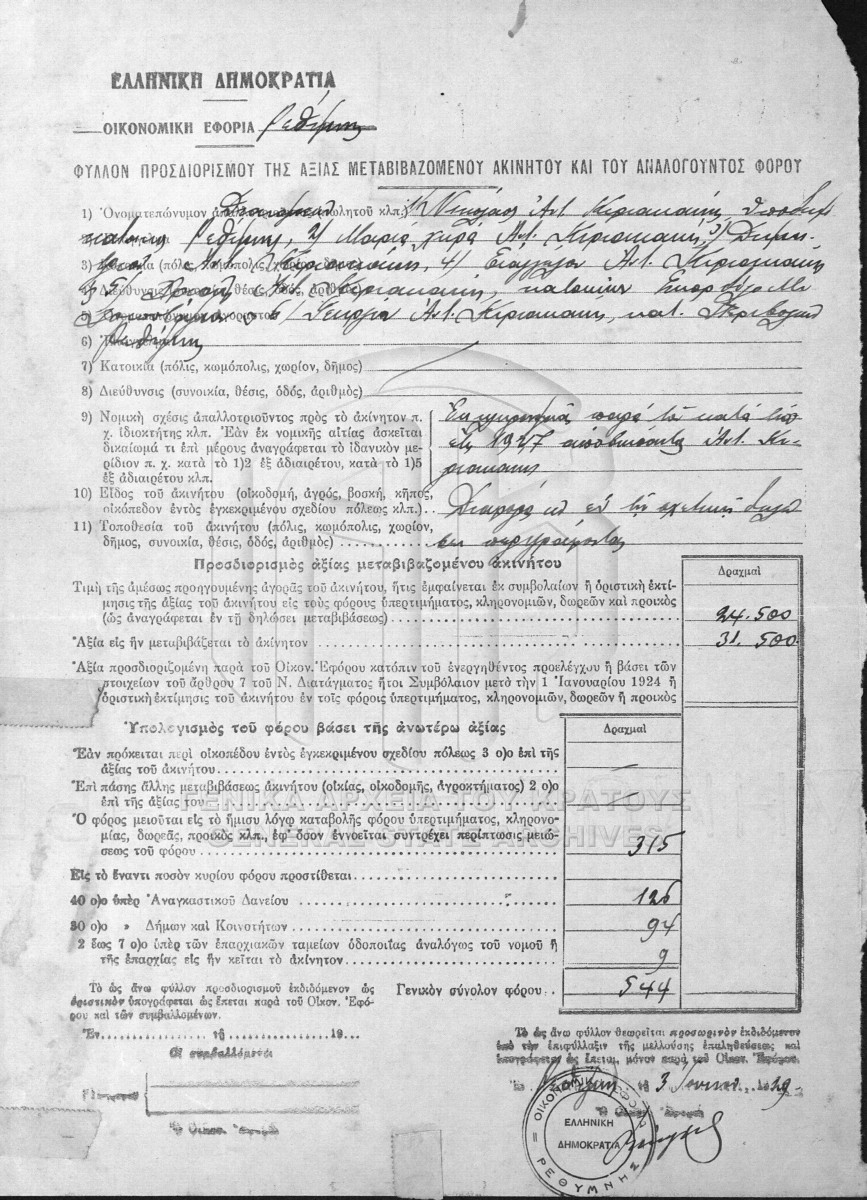 ΕΛΛΗΝΙΚΗ ΔΗΜΟΚΡΑΤΙΑ
ΟΙΚΟΝΟΜΙΚΗ ΕΦΟΡΙΑ Ρεθύμνης
ΦΥΛΛΟΝ ΠΡΟΣΔΙΟΡΙΣΜΟΥ ΤΗΣ ΑΞΙΑΣ ΜΕΤΑΒΙΒΑΖΟΜΕΝΟΥ ΑΚΙΝΗΤΟΥ ΚΑΙ ΤΟΥ ΑΝΑΛΟΓΟΥΝΤΟΣ ΦΟΡΟΥ
1) Ὀνοματεπώνυμον πωλητοῦ κλπ.: 1/ Νικόλαος Ἀντ. Κυριακάκης
Ρεθύμνης, 2/ Μαρία χήρα Ἀντ. Κυριακάκη, 3/
(πόλις, κωμόπολις, 4/ Εὐάγγελος Ἀντ. Κυριακάκης
5/ Ἀντ. Κυριακάκης,
6/ Γεωργία Ἀντ. Κυριακάκη, κατ.
6) Ρεθύμνης
7) Κατοικία (πόλις, κωμόπολις, χωρίον, δῆμος)
8) Διεύθυνσις (συνοικία, θέσις, ὁδός, ἀριθμὸς)
9) Νομικὴ σχέσις ἀπαλλοτριοῦντος πρὸς τὸ ἀκίνητον π. χ. ἰδιοκτήτης κλπ. Ἐὰν ἐκ νομικῆς αἰτίας ἀσκεῖται δικαίωμά τι ἐπὶ μέρους ἀναγράφεται τὸ ἰδανικὸν μερίδιον π. χ. κατὰ τὸ 1)2 ἐξ ἀδιαιρέτου, κατὰ τὸ 1)5 ἐξ ἀδιαιρέτου κλπ.
Ἐκ κληρονομίας παρὰ τοῦ κατὰ τὸ
ἔτος 1927 ἀποβιώσαντος Ἀντ. Κυ-
ριακάκη
10) Εἶδος τοῦ ἀκινήτου (οἰκοδομή, ἀγρός, βοσκή, κῆπος, οἰκόπεδον ἐντὸς ἐγκεκριμένου σχεδίου πόλεως κλπ.) Διάφορα ὡς ἐν τῇ σχετικῇ δηλώ-
11) Τοποθεσία τοῦ ἀκινήτου (πόλις, κωμόπολις, χωρίον, δῆμος, συνοικία, θέσις, ὁδός, ἀριθμὸς) σει περιγράφονται
Προσδιορισμὸς ἀξίας μεταβιβαζομένου ἀκινήτου
Δραχμαὶ
Τιμὴ τῆς ἀμέσως προηγουμένης ἀγορᾶς τοῦ ἀκινήτου, ἥτις ἐμφαίνεται ἐκ συμβολαίων ἢ ὁριστικὴ ἐκτί-
μησις τῆς ἀξίας τοῦ ἀκινήτου εἰς τοὺς φόρους ὑπερτιμήματος, κληρονομιῶν, δωρεῶν καὶ προικὸς
(ὡς ἀναγράφεται ἐν τῇ δηλώσει μεταβιβάσεως) 24.500
Ἀξία εἰς ἣν μεταβιβάζεται τὸ ἀκίνητον 31.500
Ἀξία προσδιοριζομένη παρὰ τοῦ Οἰκον. Ἐφόρου κατόπιν τοῦ ἐνεργηθέντος προελέγχου ἢ βάσει τῶν
στοιχείων τοῦ ἄρθρου 7 τοῦ Ν. Διατάγματος ἤτοι Συμβόλαιον μετὰ τὴν 1 Ἰανουαρίου 1924 ἢ
ὁριστικὴ ἐκτίμησις τοῦ ἀκινήτου ἐν τοῖς φόροις ὑπερτιμήματος, κληρονομιῶν, δωρεῶν ἢ προικὸς
Ὑπολογισμὸς τοῦ φόρου βάσει τῆς ἀνωτέρω ἀξίας
Δραχμαὶ
Ἐὰν πρόκειται περὶ οἰκοπέδου ἐντὸς ἐγκεκριμένου σχεδίου πόλεως 3 ο)ο ἐπὶ τῆς
ἀξίας τοῦ ἀκινήτου
Ἐπὶ πάσης ἄλλης μεταβιβάσεως ἀκινήτου (οἰκίας, οἰκοδομῆς, ἀγροκτήματος) 2 ο)ο
ἐπὶ τῆς ἀξίας του
ΓΕΝΙΚΑ ΑΡΧΕΙΑ ΤΟΥ ΚΡΑΤΟΥΣ
GENERAL STATE ARCHIVES
Ὁ φόρος μειοῦται εἰς τὸ ἥμισυ λόγῳ καταβολῆς φόρου ὑπερτιμήματος, κληρονο-
μίας, δωρεᾶς, προικὸς κλπ., ἐφ' ὅσον ἐννοεῖται συντρέχει περίπτωσις μειώ-
σεως τοῦ φόρου 315
Εἰς τὸ ἔναντι ποσὸν κυρίου φόρου προστίθεται
40 ο)ο ὑπὲρ Ἀναγκαστικοῦ Δανείου 126
30 ο)ο » Δήμων καὶ Κοινοτήτων 94
2 ἕως 7 ο)ο ὑπὲρ τῶν ἐπαρχιακῶν ταμείων ὁδοποιίας ἀναλόγως τοῦ νομοῦ ἢ
τῆς ἐπαρχίας εἰς ἣν κεῖται τὸ ἀκίνητον 9
Γενικὸν σύνολον φόρου 544
Τὸ ὡς ἄνω φύλλον προσδιορισμοῦ ἐκδιδόμενον ὡς
ὁριστικὸν ὑπογράφεται ὡς ἕπεται παρὰ τοῦ Οἰκον. Ἐφό-
ρου καὶ τῶν συμβαλλομένων.
Ἐν τῇ 19
Οἱ συμβαλλόμενοι
Ὁ Οἰκον. Ἔφορος
Τὸ ὡς ἄνω φύλλον θεωρεῖται προσωρινὸν ἐκδιδόμενον
ὑπὸ τὴν ἐπιφύλαξιν τῆς μελλούσης ἐπαληθεύσεως καὶ
ὑπογράφεται ὡς ἕπεται, μόνον παρὰ τοῦ Οἰκον. Ἐφόρου.
Ἐν Ρεθύμνῃ τῇ 3 1929
Ὁ Οἰκον. Ἔφορος
ΟΙΚΟΝΟΜΙΚΗ ΕΦΟΡΙΑ
ΕΛΛΗΝΙΚΗ
ΔΗΜΟΚΡΑΤΙΑ
ΡΕΘΥΜΝΗΣ